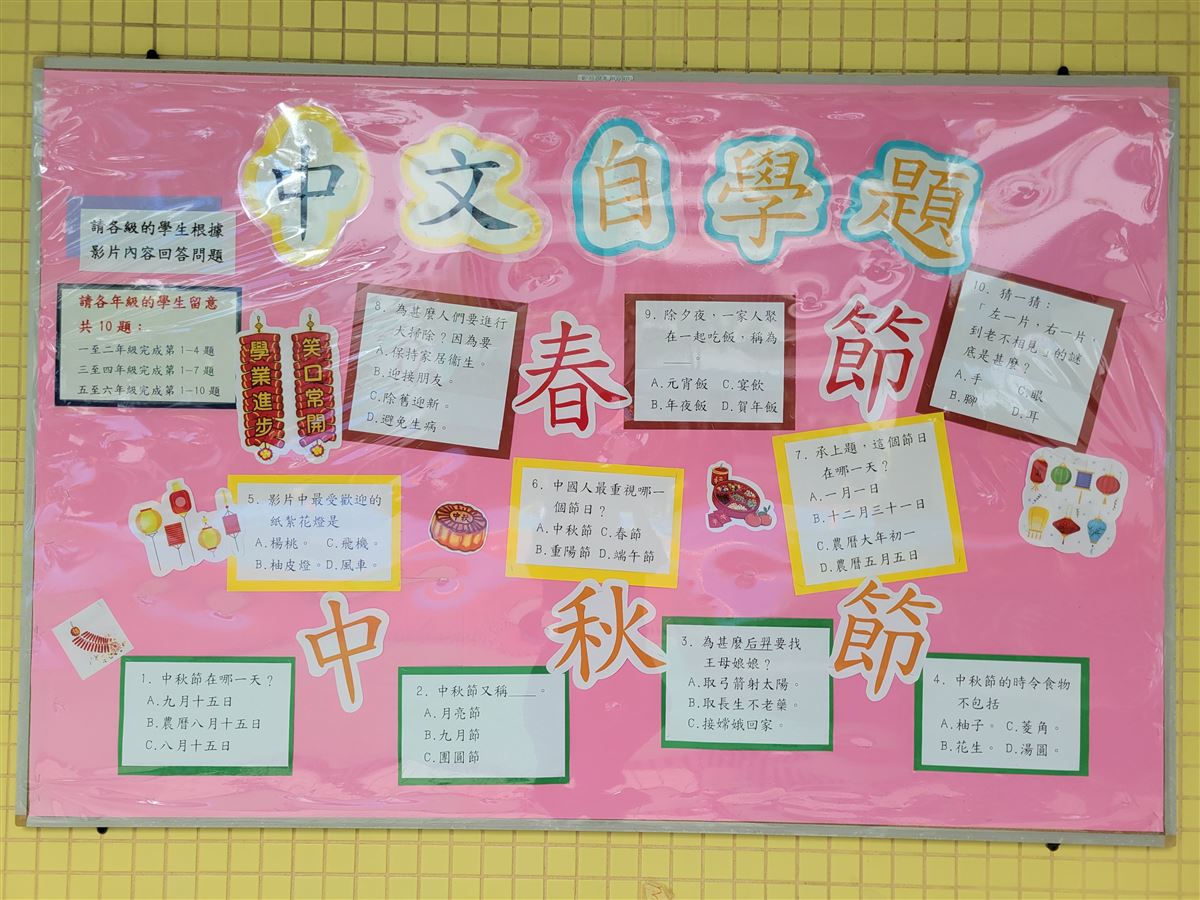 中文自學題
請各級的學生根據
影片內容回答問題
請各年級的學生留意
共10題：
一至二年級完成第1-4題
三至四年級完成第1-7題
五至六年級完成第1-10題
學業進步
笑口常開
8. 為甚麼人們要進行
大掃除？因為要
A.保持家居衞生。
B.迎接朋友。
C.除舊迎新。
D.避免生病。
春節
9. 除夕夜，一家人聚
在一起吃飯，稱為
____。
A.元宵飯 C.宴飲
B.年夜飯 D.賀年飯
10. 猜一猜：
「左一片，右一片，
到老不相見」的謎
底是甚麼？
A.手 C.眼
B.腳 D.耳
5. 影片中最受歡迎的
紙紮花燈是
A.楊桃。 C.飛機。
B.柚皮燈。D.風車。
中秋
6. 中國人最重視哪一
個節日？
A.中秋節 C.春節
B.重陽節 D.端午節
7. 承上題，這個節日
在哪一天？
A.一月一日
B.十二月三十一日
C.農曆大年初一
D.農曆五月五日
中秋節
1. 中秋節在哪一天？
A.九月十五日
B.農曆八月十五日
C.八月十五日
2. 中秋節又稱____。
A.月亮節
B.九月節
C.團圓節
3. 為甚麼后羿要找
王母娘娘？
A.取弓箭射太陽。
B.取長生不老藥。
C.接嫦娥回家。
4. 中秋節的時令食物
不包括
A.柚子。 C.菱角。
B.花生。 D.湯圓。